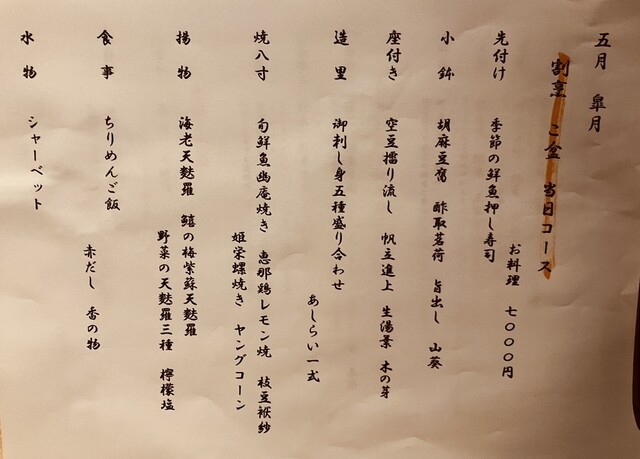 五月　皐月
割烹　こ盆　当日コース
お料理　七〇〇〇円
先付け　季節の鮮魚押し寿司
小鉢　胡麻豆腐　酢取茗荷　旨出し　山葵
座付き　空豆擂り流し　帆立進上　生湯葉　木の芽
造里　御刺し身五種盛り合わせ
あしらい一式
焼八寸　旬鮮魚幽庵焼き　恵那鶏レモン焼　枝豆袱紗
姫栄螺焼き　ヤングコーン
揚物　海老天麩羅　鱚の梅紫蘇天麩羅
野菜の天麩羅三種　檸檬塩
食事　ちりめんご飯
赤だし　香の物
水物　シャーベット